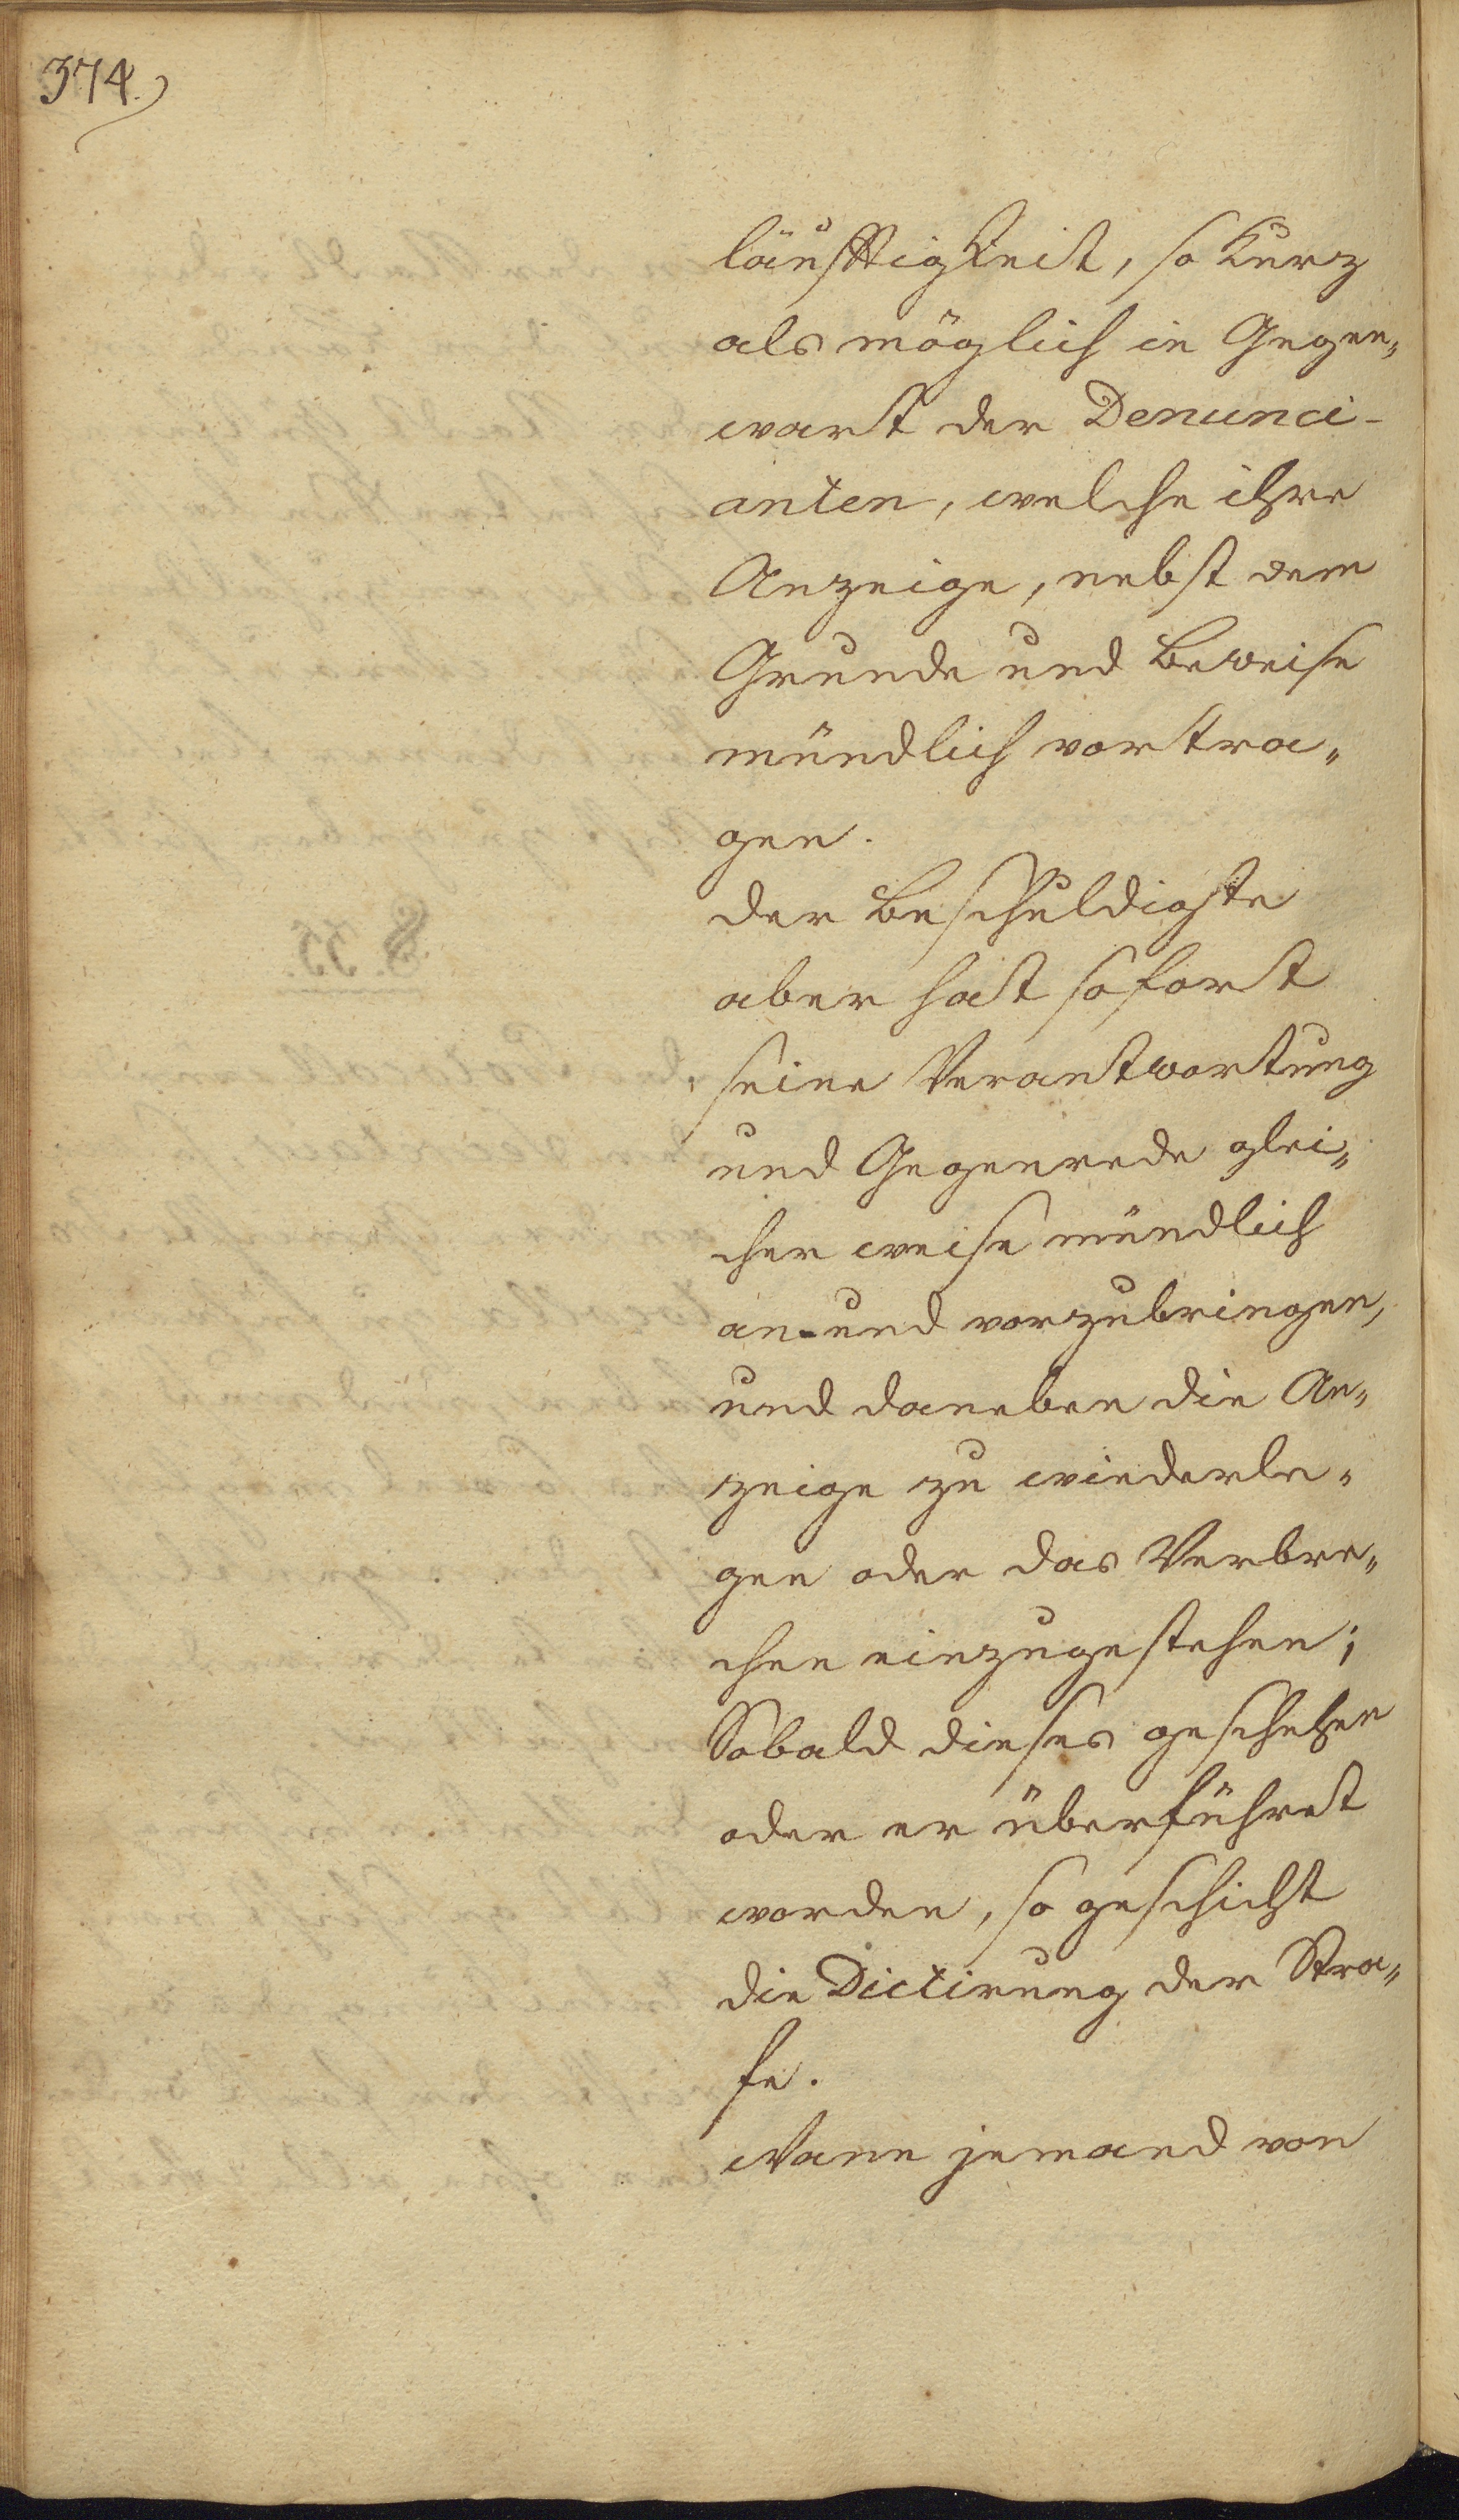 374.
läufftigkeit, so kurz
als möglich in Gegen„
wart der Denunci-
anten, welche ihre
Anzeige, nebst dem
Grunde und Beweise
mündlich vortra„
gen.
der Beschuldigte
aber hat sofort
seine Verantwortung
und Gegenrede glei„
cher weise mündlich
an- und vorzubringen,
und daneben die An„
zeige zu wiederle„
gen oder das Verbre„
chen einzugestehen;
Sobald dieses geschehen
oder er überführet
worden, so geschicht
die Dictirung der Stra„
fe.
Wann jemand von